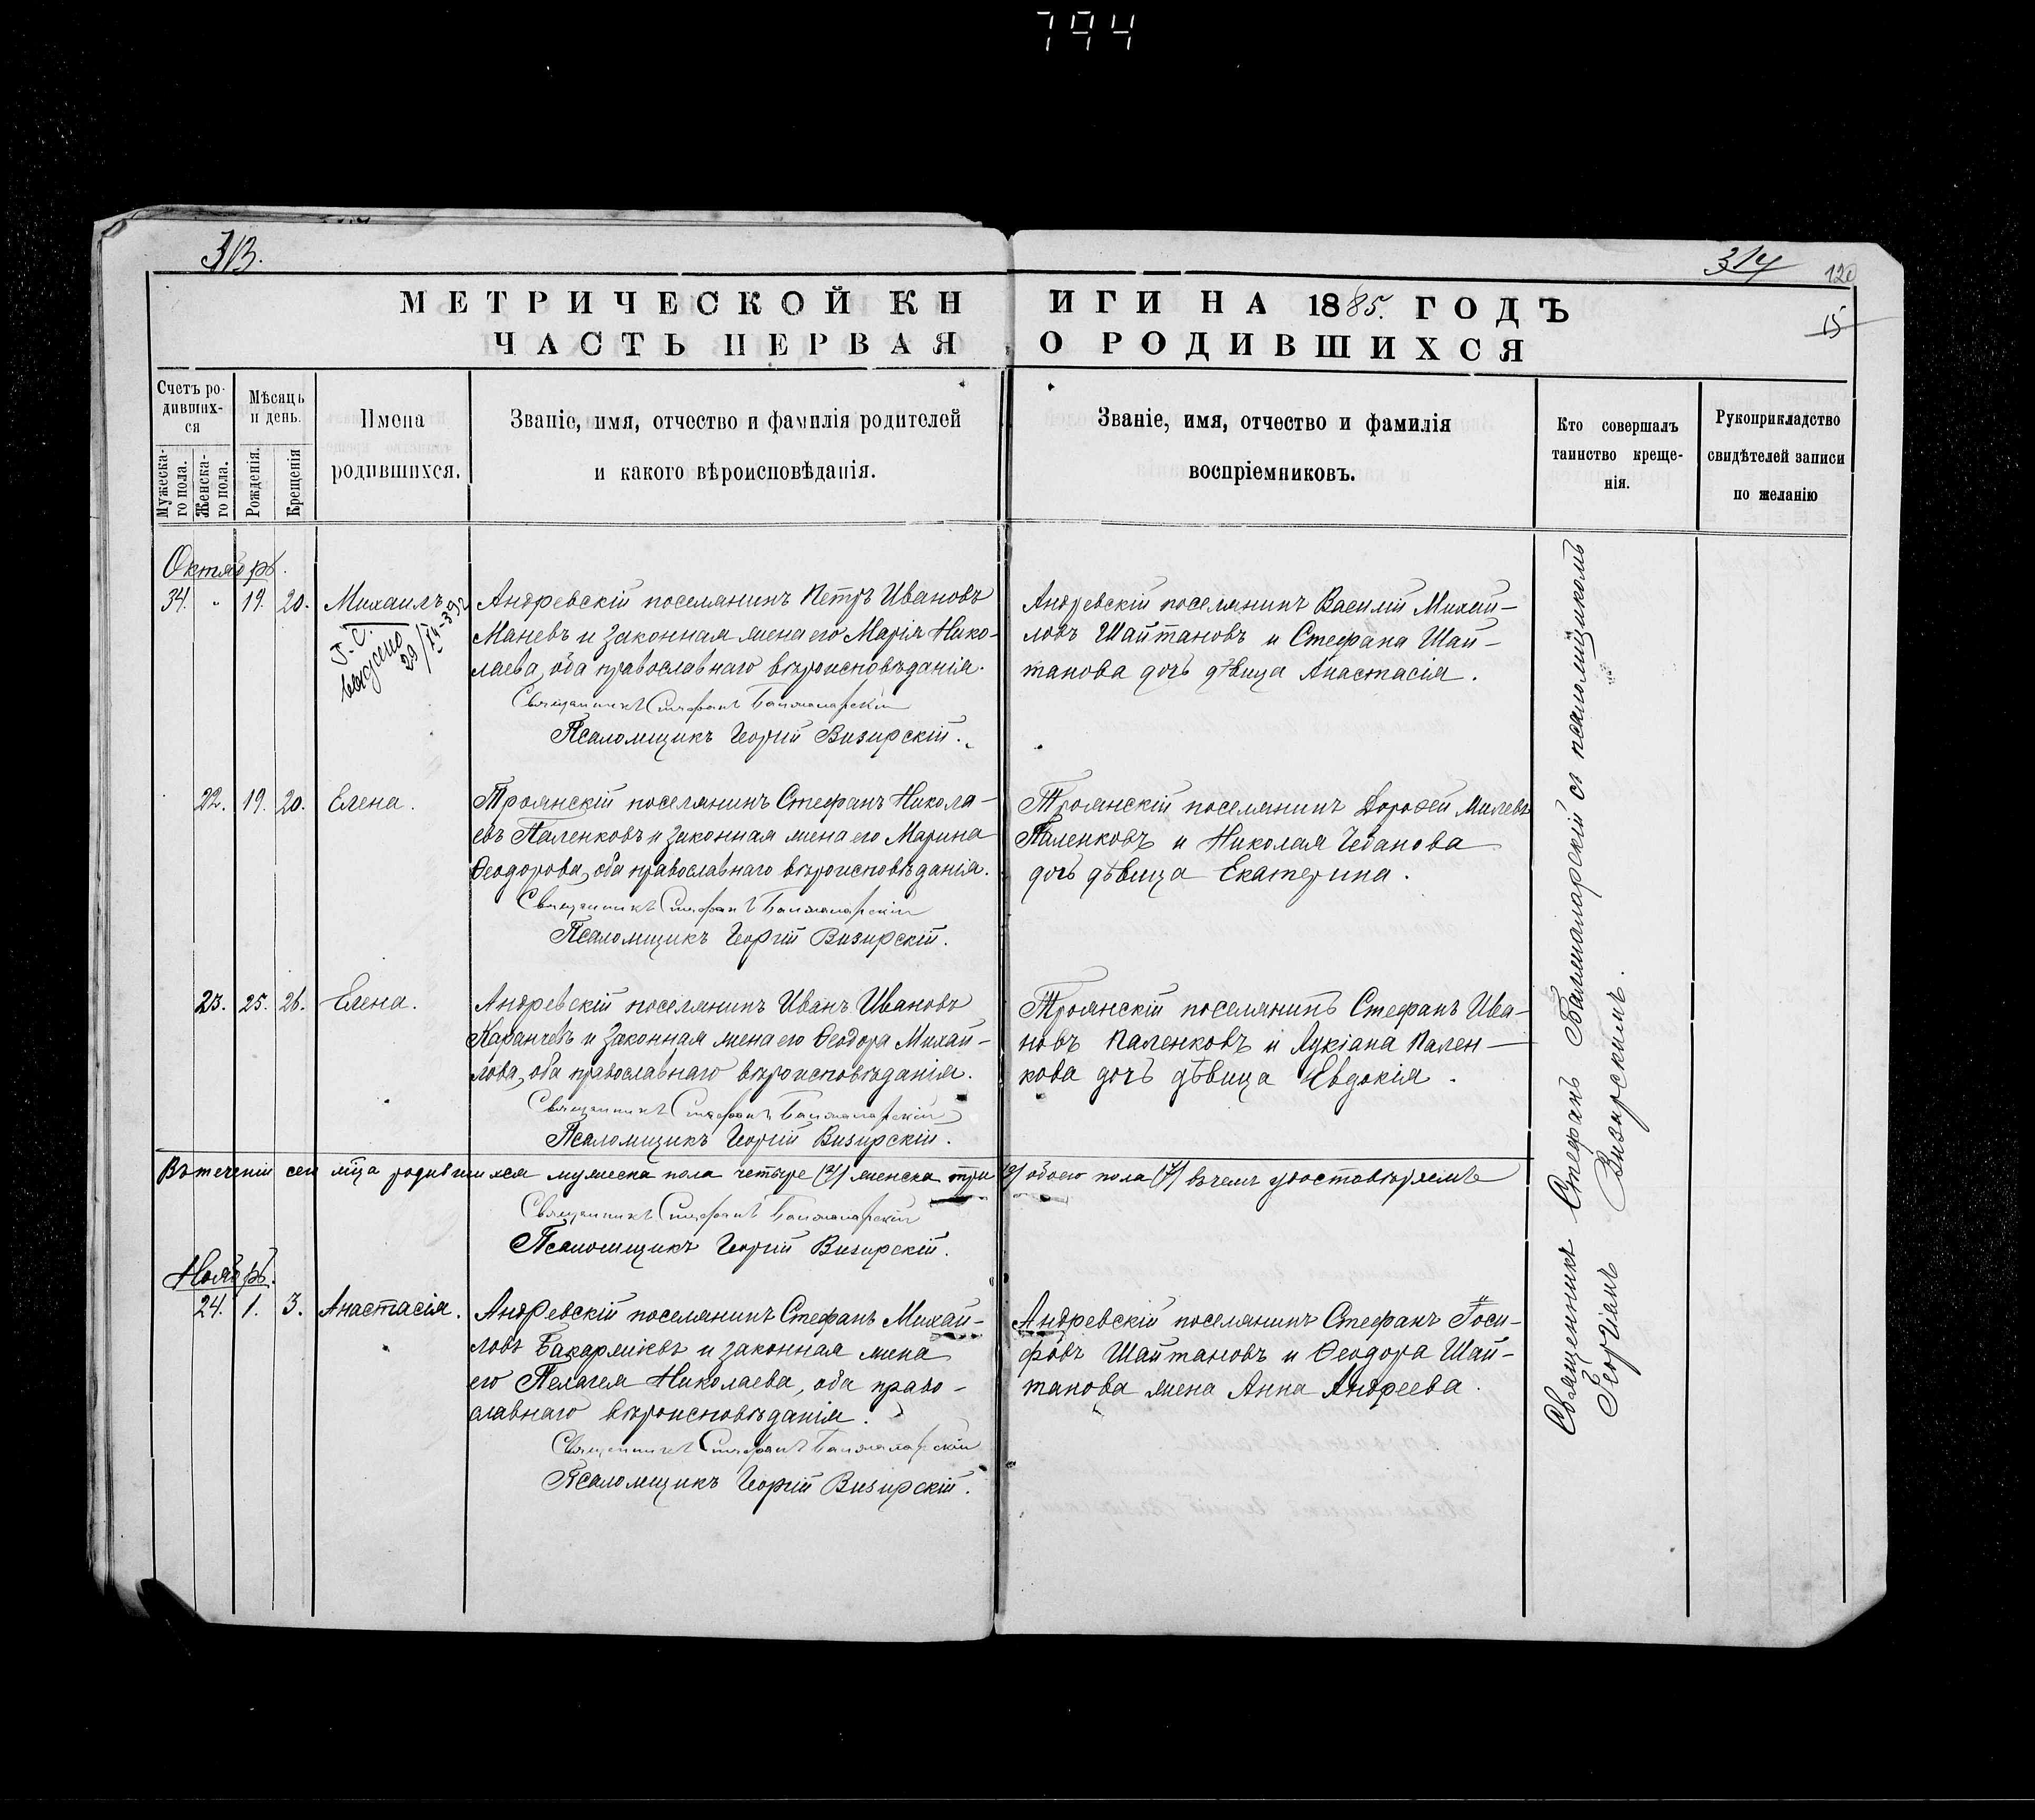 794
313.
314
120
15
МЕТРИЧЕСКОЙ КНИГИ НА 1885. ГОДЪ
ЧАСТЬ ПЕРВАЯ О РОДИВШИХСЯ
Счетъ ро-
дивших-
ся
Мужеска-
го пола.
Женска-
го пола.
Мѣсяцъ
и день.
Рожденія.
Крещенія
Имена
родившихся.
Званіе, имя, отчество и фамилія родителей
и какого вѣроисповѣданія.
Званіе, имя, отчество и фамилія
воспріемниковъ.
Кто совершалъ
таинство креще-
нія.
Рукоприкладство
свидѣтелей записи
по желанію
Октябрь.
34. " 19. 20. Михаилъ
выдано
Андревскій поселянинъ Петръ Ивановъ
Маневъ и законная жена его Марія Нико-
лаева, оба православнаго вѣроисповѣданія.
Священникъ Стефанъ Балжаларскій
Псаломщикъ Георгій Визирскій.
Андревскій поселянинъ Василій Михай-
ловъ Шайтановъ и Стефана Шай-
танова дочь дѣвица Анастасія.
22. 19. 20. Елена.
Троянскій поселянинъ Стефанъ Никола-
евъ Паленковъ и законная жена его Марина
Ѳеодорова, оба православнаго вѣроисповѣданія.
Священникъ Стефанъ Балжаларскій
Псаломщикъ Георгій Визирскій.
Троянскій поселянинъ Дороѳей Милевъ
Паленковъ и Николая Чебанова
дочь дѣвица Екатерина.
23. 25. 26. Елена.
Андревскій поселянинъ Иванъ Ивановъ
Каранчевъ и законная жена его Ѳеодора Михай-
лова, оба православнаго вѣроисповѣданія.
Священникъ Стефанъ Балжаларскій
Псаломщикъ Георгій Визирскій.
Троянскій поселянинъ Стефанъ Ива-
новъ Паленковъ и Лукіана Пален-
кова дочь дѣвица Евдокія.
Въ теченіи сего мѣца родившихся мужеска пола четыре женска три (3) обоего пола (7) въ чемъ удостовѣряемъ
Священникъ Стефанъ Балжаларскій
Псаломщикъ Георгій Визирскій.
Ноябрь.
24. 1. 3. Анастасія.
Андревскій поселянинъ Стефанъ Михай-
ловъ Бакаржіевъ и законная жена
его Пелагея Николаева, оба право-
славнаго вѣроисповѣданія.
Священникъ Стефанъ Балжаларскій
Псаломщикъ Георгій Визирскій.
Андревскій поселянинъ Стефанъ Іоси-
фовъ Шайтановъ и Ѳеодора Шай-
танова жена Анна Андреева.
Священникъ Стефанъ Балжаларскій съ псаломщикомъ
Георгіемъ Визирскимъ.